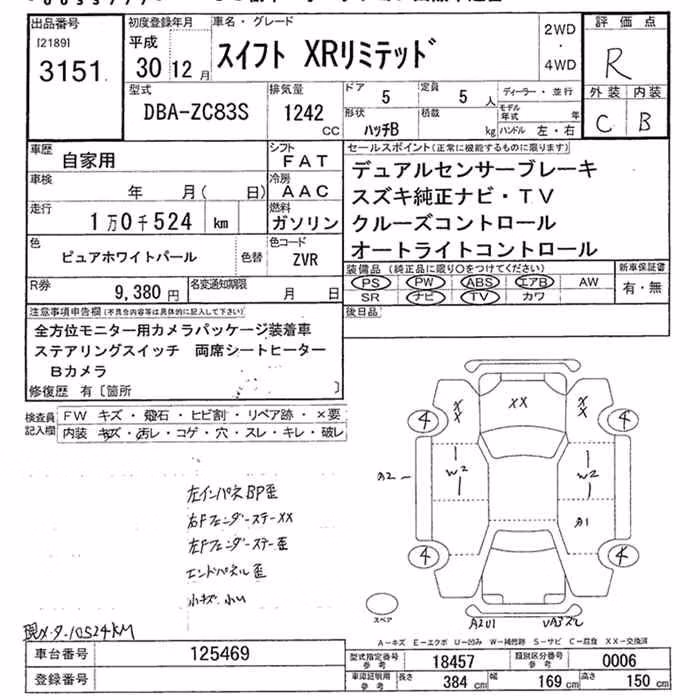 出品番号
[2189]
3151
初度登録年月
平成
30 12 月
車名・グレード
スイフト XRリミテッド
2WD
・
4WD
評価点
R
外装 内装
C B
型式
DBA-ZC83S
排気量
1242
CC
ドア
5
定員
5 人
形状
ハッチB
積載
kg
ディーラー・並行
モデル年式 年
ハンドル 左・右
車歴
自家用
シフト
FAT
車検
年 月( 日)
冷房
AAC
走行
1万0千524 km
燃料
ガソリン
色
ピュアホワイトパール
色替
色コード
ZVR
R券
9,380 円
名変通知期限
月 日
セールスポイント(正常に機能するものに限ります)
デュアルセンサーブレーキ
スズキ純正ナビ・TV
クルーズコントロール
オートライトコントロール
装備品(純正品に限り○をつけてください)
PS PW ABS エアB AW
SR ナビ TV カワ
新車保証書
有・無
後日品
注意事項申告欄(不具合内容等は具体的に記入して下さい)
全方位モニター用カメラパッケージ装着車
ステアリングスイッチ 両席シートヒーター
Bカメラ
修復歴 有〔箇所 〕
検査員記入欄
FW キズ・飛石・ヒビ割・リペア跡・×要
内装 キズ・汚レ・コゲ・穴・スレ・キレ・破レ
左インパネBP歪
右Fフェンダーステーxx
左Fフェンダーステー歪
エンドパネル歪
小キズ・小U
現メータ・10524KM
XX
XX
XX
4
4
W2
W2
A2
A1
4
4
スペア
A2U1
A-キズ E-エクボ U-凹み W-補修跡 S-サビ C-腐食 XX-交換済
車台番号
125469
登録番号
型式指定番号
参考
18457
類別区分番号
参考
0006
車庫証明用
参考
長さ 384 cm 幅 169 cm 高さ 150 cm